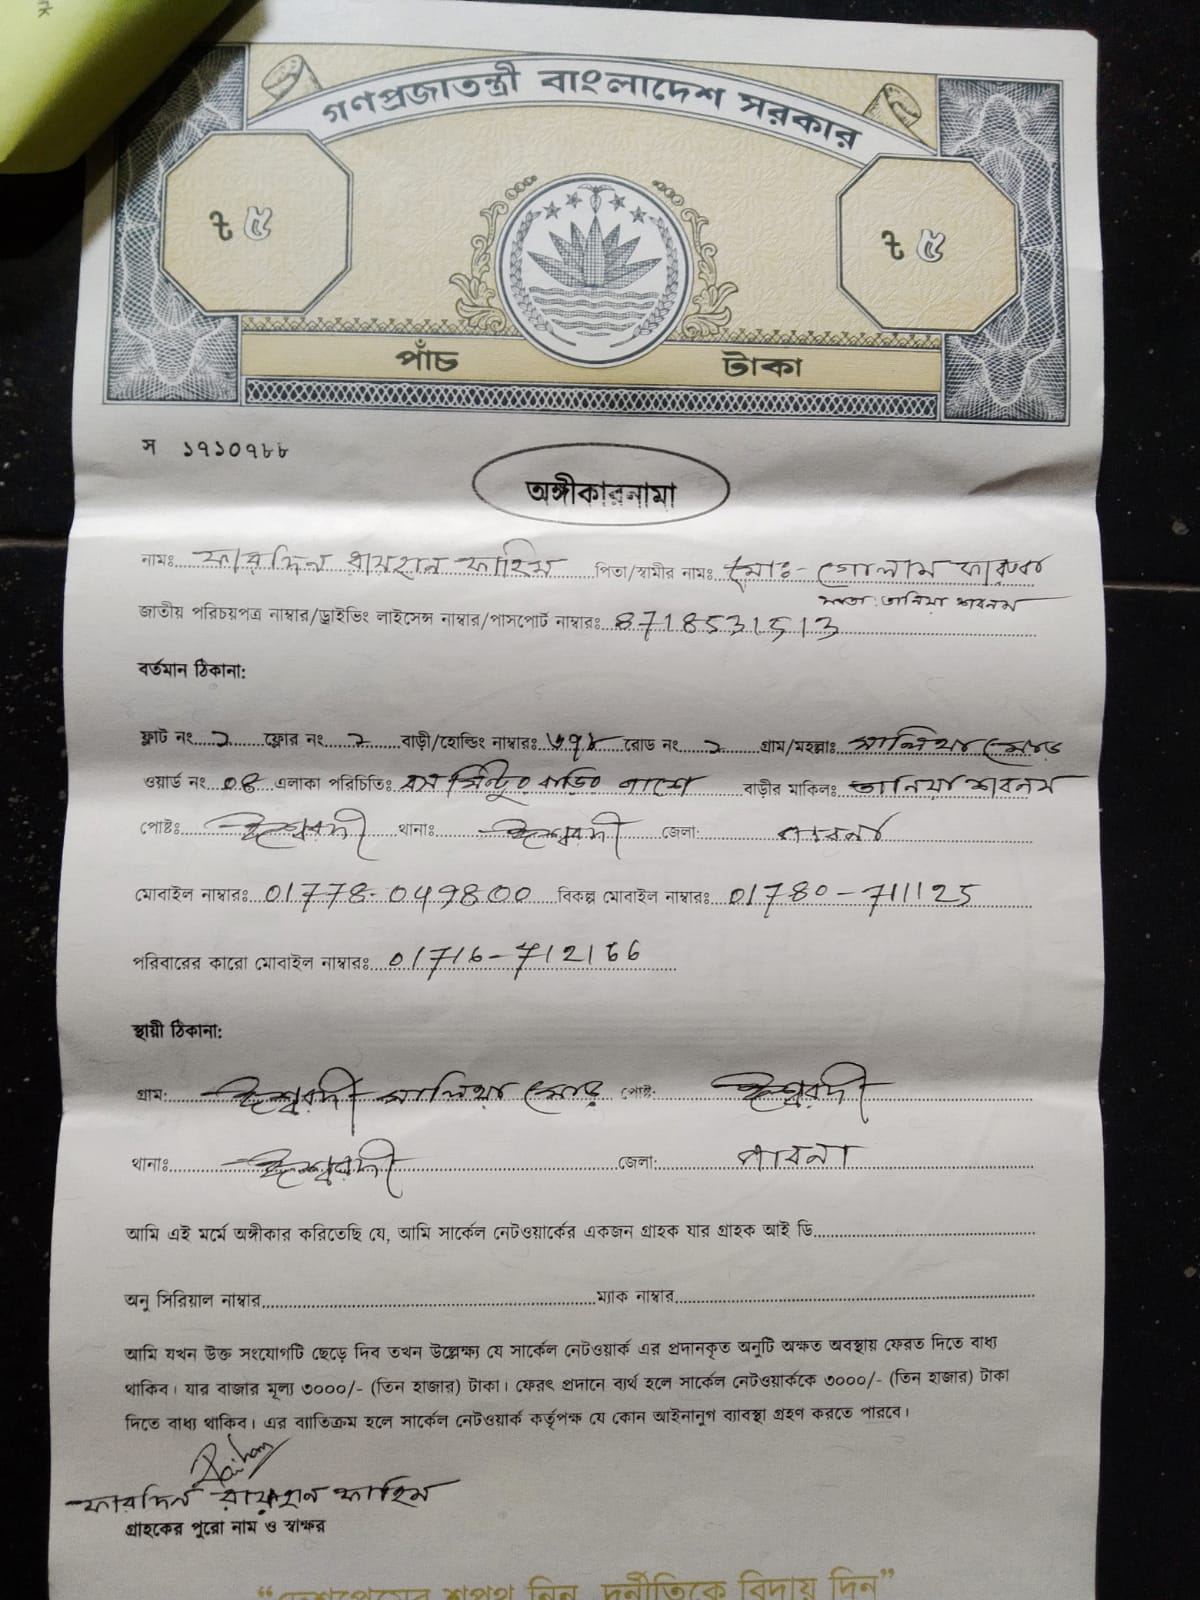 গণপ্রজাতন্ত্রী বাংলাদেশ সরকার
৳ ৫
৳ ৫
পাঁচ টাকা
স ১৭১০৭৮৮
অঙ্গীকারনামা
নামঃ ফারদিন রায়হান ফাহিম পিতা/স্বামীর নামঃ মোঃ- গোলাম ফারুক
মাতা: তানিয়া শবনম
জাতীয় পরিচয়পত্র নাম্বার/ড্রাইভিং লাইসেন্স নাম্বার/পাসপোর্ট নাম্বারঃ 8718531513
বর্তমান ঠিকানা:
ফ্লাট নং ফ্লোর নং বাড়ী/হোল্ডিং নাম্বারঃ রোড নং গ্রাম/মহল্লাঃ মোড়
ওয়ার্ড নং 04 এলাকা পরিচিতিঃ পাশে বাড়ীর মালিকঃ তানিয়া শবনম
পোষ্টঃ ঈশ্বরদী থানাঃ ঈশ্বরদী জেলা: পাবনা
মোবাইল নাম্বারঃ 01778-049800 বিকল্প মোবাইল নাম্বারঃ 01780-711125
পরিবারের কারো মোবাইল নাম্বারঃ 01716-712166
স্থায়ী ঠিকানা:
গ্রাম: ঈশ্বরদী মোড় পোষ্ট: ঈশ্বরদী
থানাঃ ঈশ্বরদী জেলা: পাবনা
আমি এই মর্মে অঙ্গীকার করিতেছি যে, আমি সার্কেল নেটওয়ার্কের একজন গ্রাহক যার গ্রাহক আই ডি
অনু সিরিয়াল নাম্বার ম্যাক নাম্বার
আমি যখন উক্ত সংযোগটি ছেড়ে দিব তখন উল্লেক্ষ্য যে সার্কেল নেটওয়ার্ক এর প্রদানকৃত অনুটি অক্ষত অবস্থায় ফেরত দিতে বাধ্য
থাকিব। যার বাজার মূল্য ৩০০০/- (তিন হাজার) টাকা। ফেরৎ প্রদানে ব্যর্থ হলে সার্কেল নেটওয়ার্ককে ৩০০০/- (তিন হাজার) টাকা
দিতে বাধ্য থাকিব। এর ব্যাতিক্রম হলে সার্কেল নেটওয়ার্ক কর্তৃপক্ষ যে কোন আইনানুগ ব্যাবস্থা গ্রহণ করতে পারবে।
Raihan
ফারদিন রায়হান ফাহিম
গ্রাহকের পুরো নাম ও স্বাক্ষর
“দেশপ্রেমের শপথ নিন, দুর্নীতিকে বিদায় দিন”